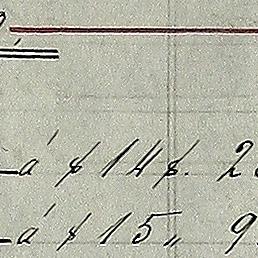 á $ 14 $. 2
á $ 15 „ 9